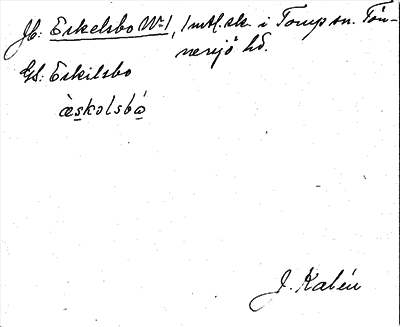 Jb. Eskelsbo No 1, 1 mtl. sk. i Torup sn. Tön-
nersjö hd.
GS. Eskilsbo
ä̀skəlsbó̤
J. Kalén